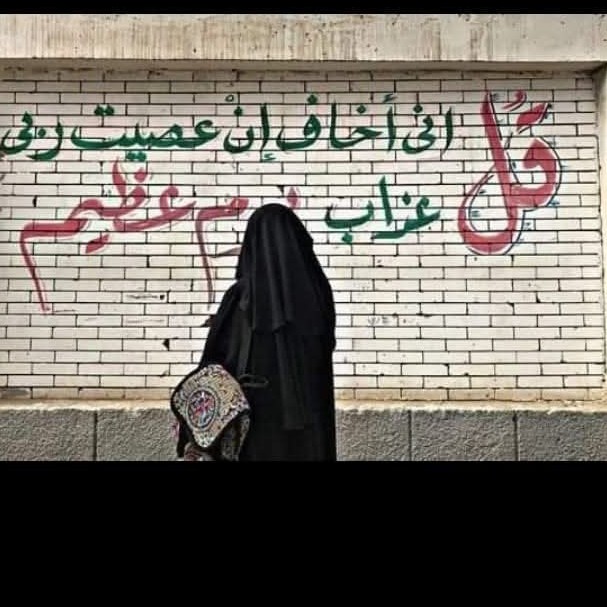 قُل انى أخاف إنْ عصيت ربى
عذاب يوم عظيم